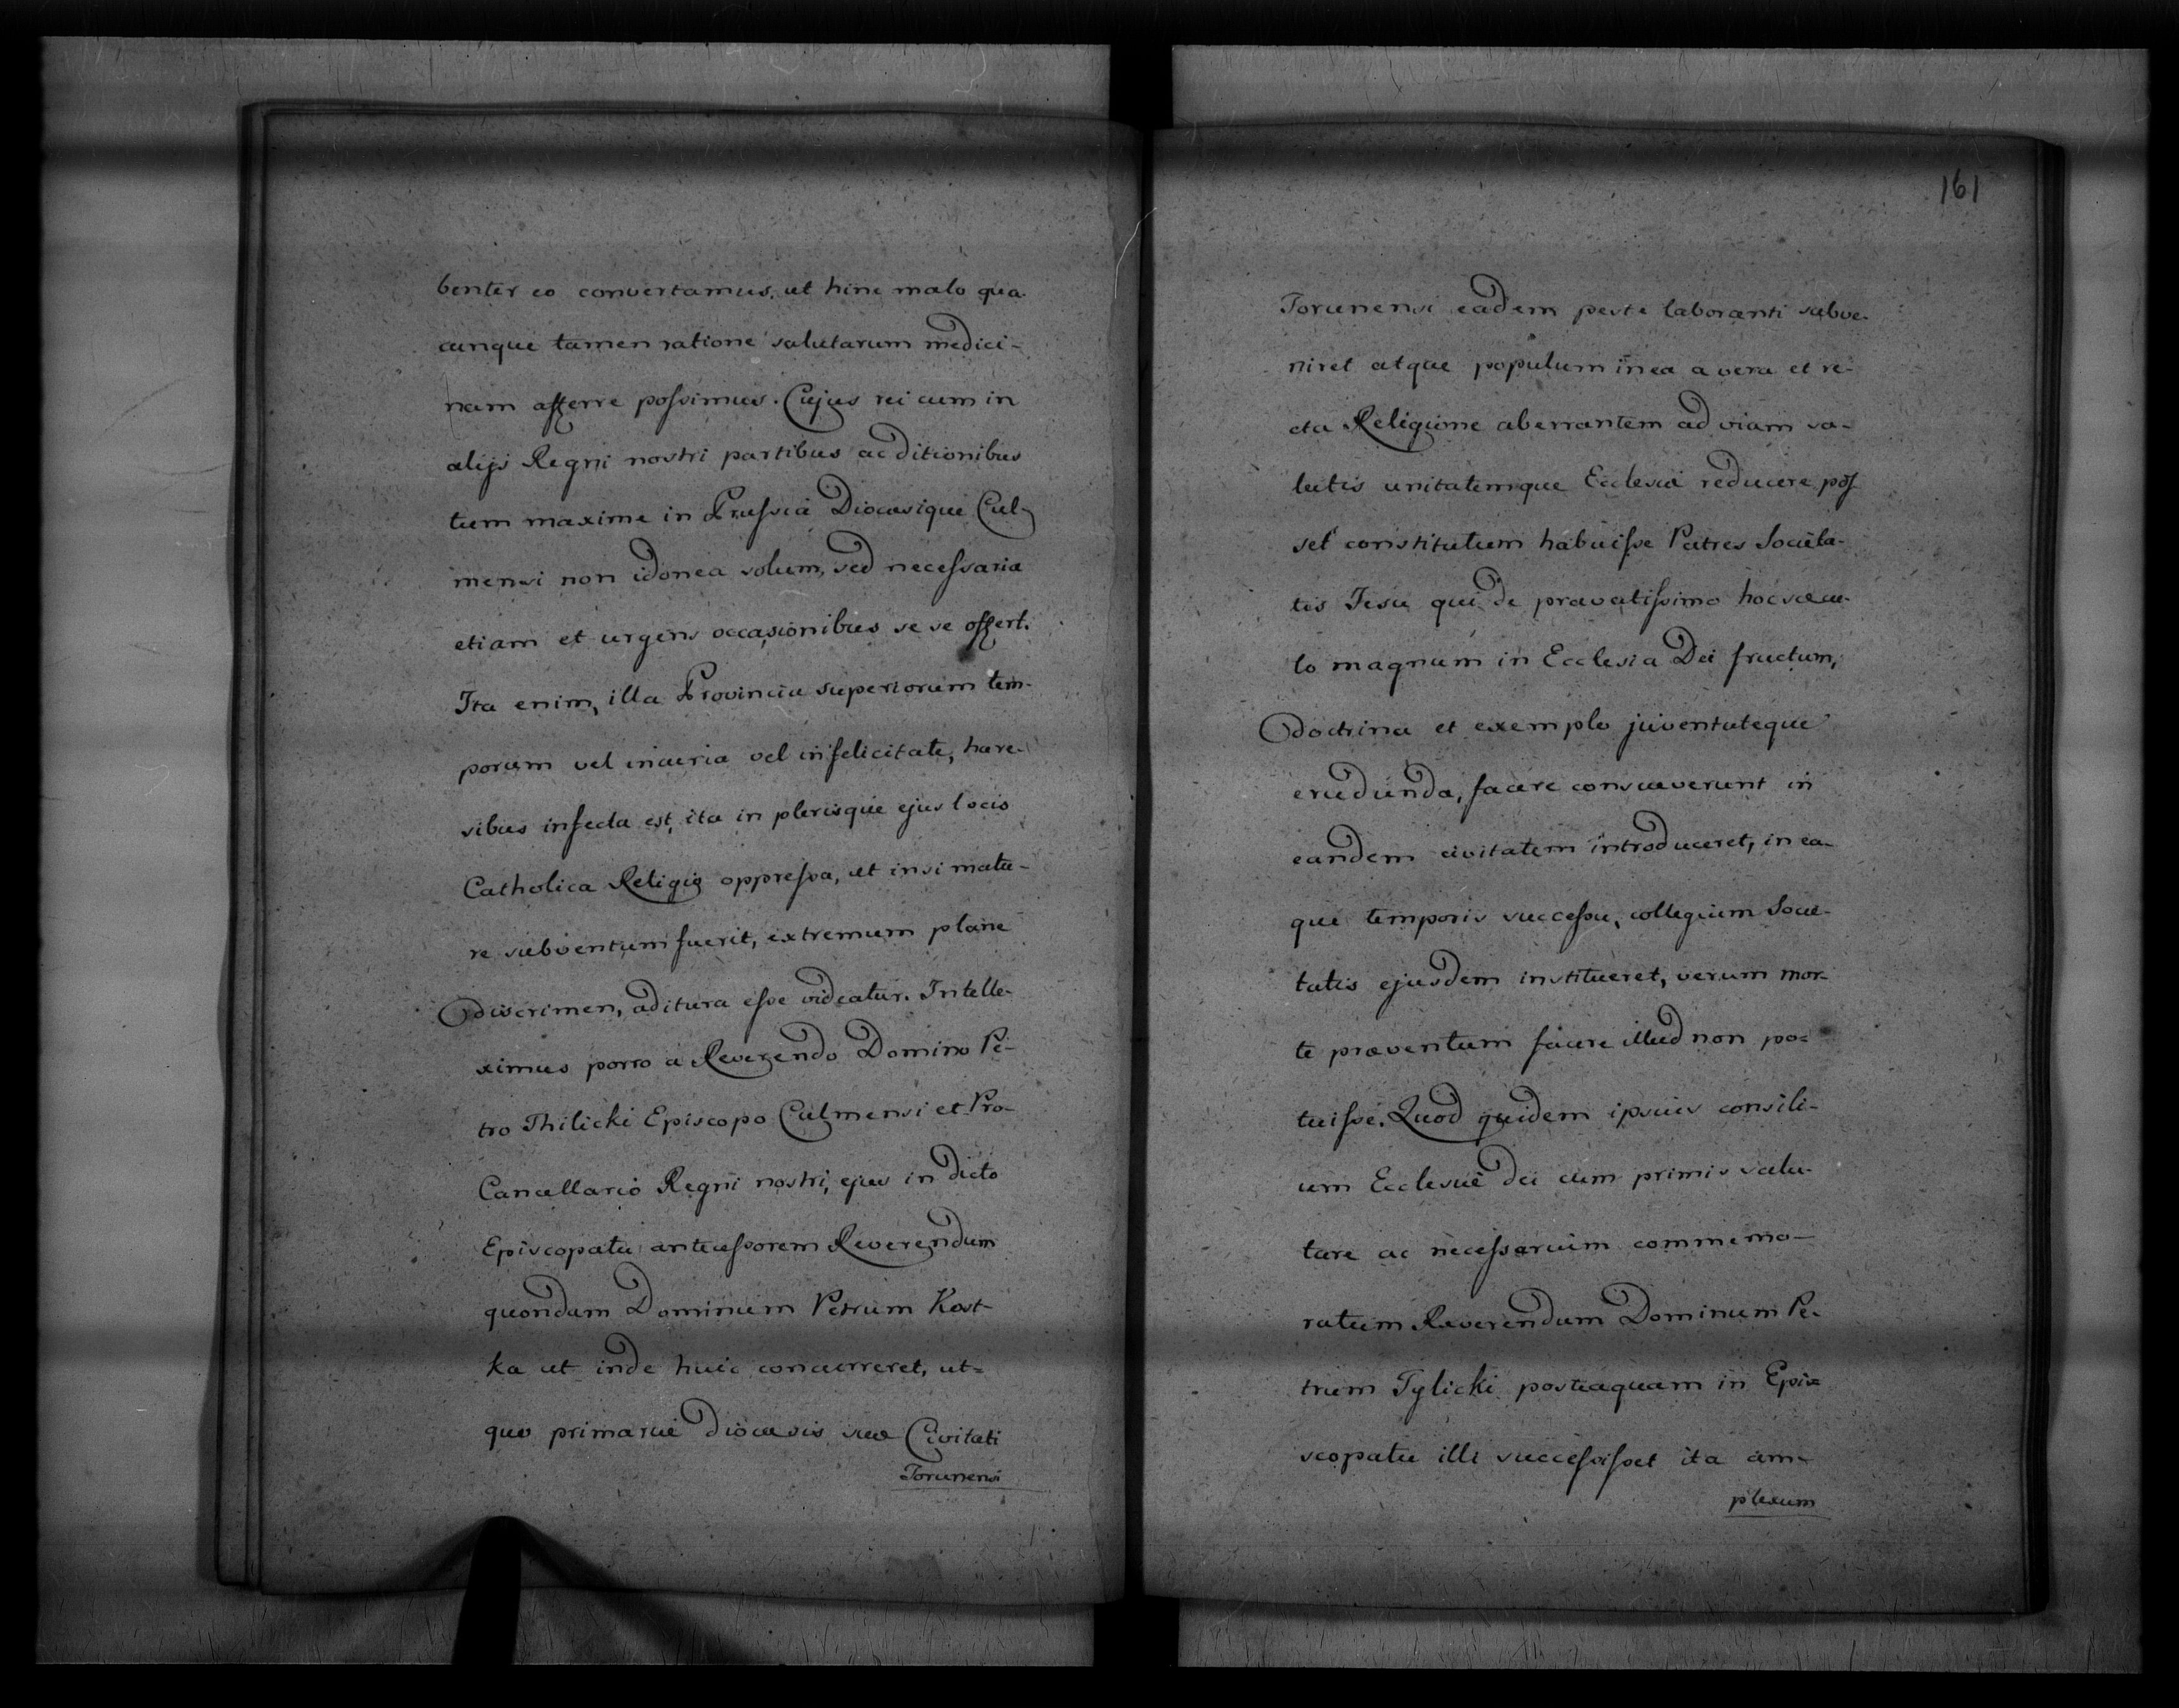 benter eo convertamus, ut hinc malo qua-
cunque tamen ratione salutarum medici-
nam afferre possimus. Cujus rei cum in
alijs Regni nostri partibus ac ditionibus
tum maxime in Prussia Diocæsique Cul-
mensi non idonea solum, sed necessaria
etiam et urgens occasionibus se se offert.
Ita enim, illa Provincia superiorum tem-
porum vel incuria vel infelicitate, hære-
sibus infecta est, ita in plerisque ejus locis
Catholica Religio oppressa, ut in si matu-
re subventum fuerit, extremum plane
discrimen, aditura esse videatur. Intelle-
ximus porro a Reverendo Domino Pe-
tro Thilicki Episcopo Culmensi et Pro-
Cancellario Regni nostri, ejus in dicto
Episcopatu antecessorem Reverendum
quondam Dominum Petrum Kost-
ka ut inde huic concurreret, ut=
quo primariæ diocæsis suæ Civitati
Torunensi
161
Torunensi eadem peste laboranti subve-
niret atque populum in ea a vera et re-
cta Religione aberrantem ad viam sa-
lutis unitatemque Ecclesiæ reducere pos
set constitutum habuisse Patres Societa-
tis Jesu qui de pravatissimo hoc sæcu-
lo magnum in Ecclesia Dei fructum,
doctrina et exemplo juventuteque
erudiunda, facere consueverunt in
eandem civitatem introduceret, in ea-
que temporis successu, collegium Socie-
tatis ejusdem institueret, verum mor-
te præventum facere illud non po=
tuisse. Quod quidem ipsius consili-
um Ecclesiæ dei cum primis salu-
tare ac necessarium commemo-
ratum Reverendum Dominum Pe-
trum Tylicki posteaquam in Epis=
scopatu illi successisset ita am-
plexum